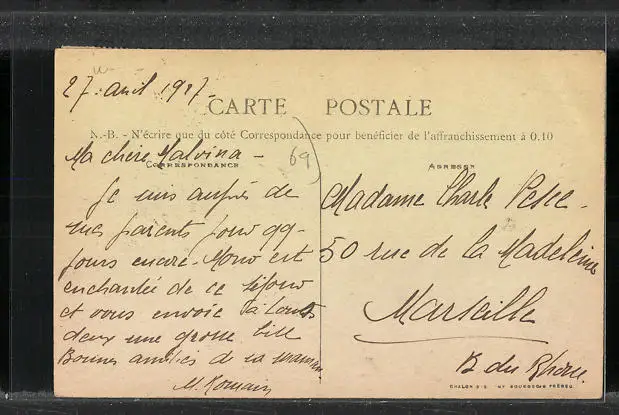 27. avril 1917.
CARTE POSTALE
N.-B. - N'écrire que du côté Correspondance pour bénéficier de l'affranchissement à 0.10
69
Ma chère Malvina -
CORRESPONDANCE
Je suis auprès de
mes parents pour qq-
jours encore. est
enchantée de ce séjour
et vous envoie à toutes
deux une grosse
Bonnes amitiés de sa maman
M. Romain
ADRESSE
Madame Charle
50 rue de la Madeleine
Marseille
B. du Rhône.
CHALON S S. BOURGEOIS FRÈRES